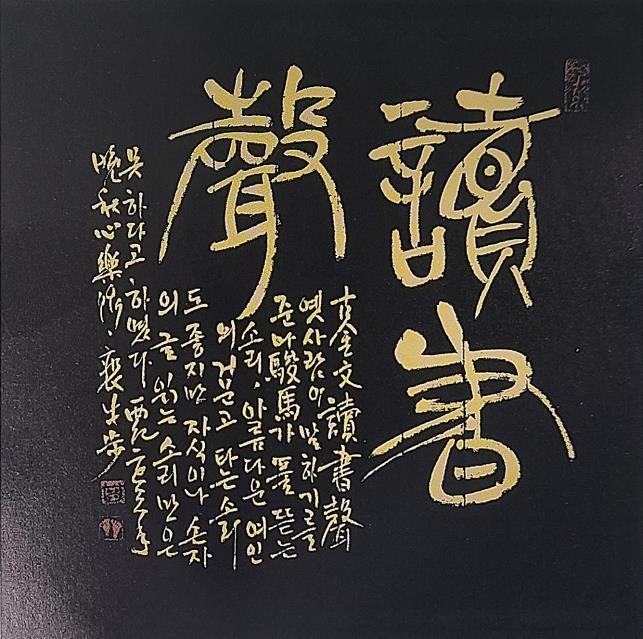 讀書
聲
古金文讀書聲
옛사람이 말하기를
준마駿馬가 풀 뜯는
소리, 아름다운 여인
의 거문고 타는 소리
도 좋지만 자식이나 손자
의 글 읽는 소리만은
못 하다고, 하였다
曉秋心樂